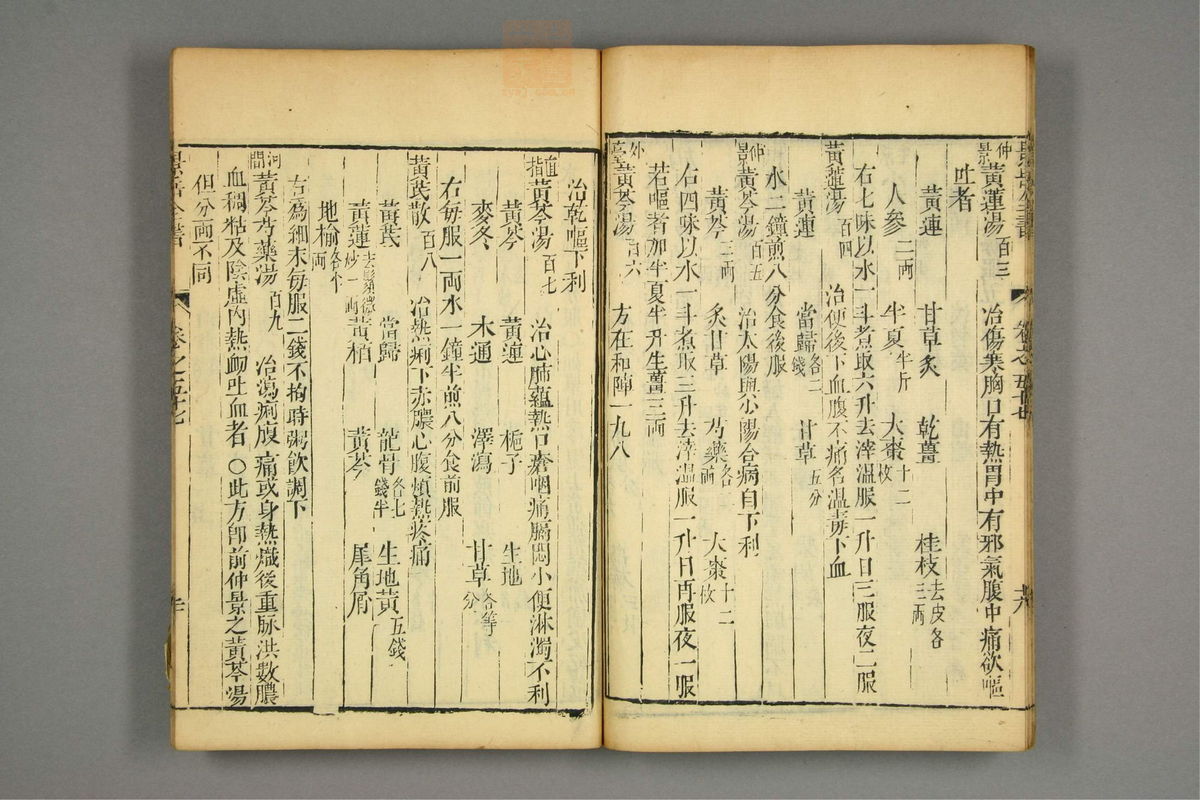 仲景黃蓮湯百三 治傷寒胸口有熱胃中有邪氣腹中痛欲嘔
吐者
黃連 甘草炙 乾薑 桂枝去皮各三兩
人參二兩 半夏半斤 大棗十二枚
右七味以水一斗煮取六升去滓溫服一升日三服夜二服
黃蓮湯百四 治便後下血腹不痛名溫毒下血
黃連 當歸各二錢 甘草五分
水二鐘煎八分食後服
仲景黃芩湯百五 治太陽與少陽合病自下利
黃芩三兩 炙甘草 芍藥各二兩 大棗十二枚
右四味以水一斗煮取三升去滓溫服一升日再服夜一服
若嘔者加半夏半升生薑三兩
外臺黃芩湯百六 方在和陣一九八
治乾嘔下利
直指黃芩湯百七 治心肺蘊熱口瘡咽痛膈悶小便淋濁不利
黃芩 黃連 梔子 生地
麥冬 木通 澤瀉 甘草各等分
右每服一兩水一鐘半煎八分食前服
黃芪散百八 治熱痢下赤膿心腹煩熱疼痛
黃芪 當歸 龍骨各七錢半 生地黃五錢
黃蓮去鬚微炒一兩 黃栢 黃芩 犀角屑
地榆各半兩
右為細末每服二錢不拘時粥飲調下
河間黃芩芍藥湯百九 治瀉痢腹痛或身熱熾後重脉洪數膿
血稠粘及陰虛內熱衄吐血者〇此方即前仲景之黃芩湯
但分兩不同
卷之五十七